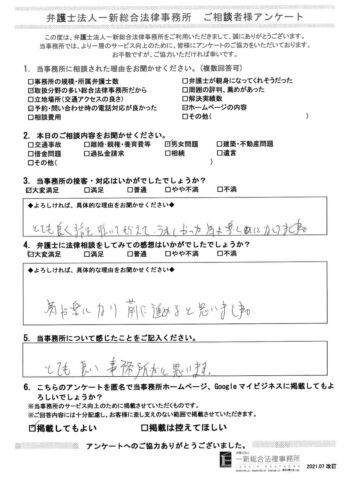 弁護士法人一新総合法律事務所 ご相談者様アンケート
この度は、弁護士法人一新総合法律事務所をご利用いただきまして、誠にありがとうございます。
当事務所では、より一層のサービス向上のために、皆様にアンケートのご協力をいただいております。
お手数ですが、ご協力いただければ幸いです。
1. 当事務所に相談された理由をお聞かせください。(複数回答可)
□事務所の規模・所属弁護士数 □弁護士が親身になってくれそうだった
☑取扱分野の多い総合法律事務所だから □周囲の評判、薦めがあった
□立地場所(交通アクセスの良さ) □解決実績数
☑予約・問い合わせ時の電話対応が良かった ☑ホームページの内容
□相談費用 □その他( )
2. 本日のご相談内容をお聞かせください。
□交通事故 □離婚・親権・養育費等 ☑男女問題 □建築・不動産問題
□借金問題 □過払金請求 □相続 □遺言
□その他( )
3. 当事務所の接客・対応はいかがでしたでしょうか?
☑大変満足 □満足 □普通 □やや不満 □不満
◆よろしければ、具体的な理由をお聞かせください◆
とても良く話を聞いて
4. 弁護士に法律相談をしてみての感想はいかがでしたでしょうか?
☑大変満足 □満足 □普通 □やや不満 □不満
◆よろしければ、具体的な理由をお聞かせください◆
気が楽になり 前に進めると思いました。
5. 当事務所について感じたことをご記入ください。
とても良い事務所だと思います。
6. こちらのアンケートを匿名で当事務所ホームページ、Googleマイビジネスに掲載してもよ
ろしいでしょうか?
※当事務所のサービス向上のために掲載させていただくものです。
※ご回答内容には十分配慮し、お客様に差し支えのない範囲で掲載させていただきます。
☑掲載してもよい □掲載は控えてほしい
アンケートへのご協力ありがとうございました。
弁護士法人
一新総合法律事務所
2021.07 改訂